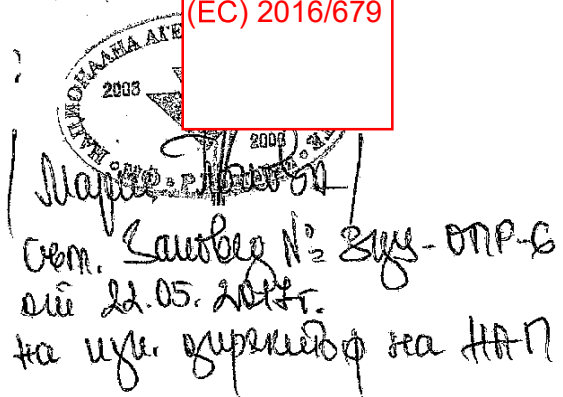 (ЕС) 2016/679
НАЦИОНАЛНА АГЕ
2003
2006
Мария
съгл. Заповед № ЗЦУ-ОПР-6
от 22.05.2017г.
на изп. директор на НАП